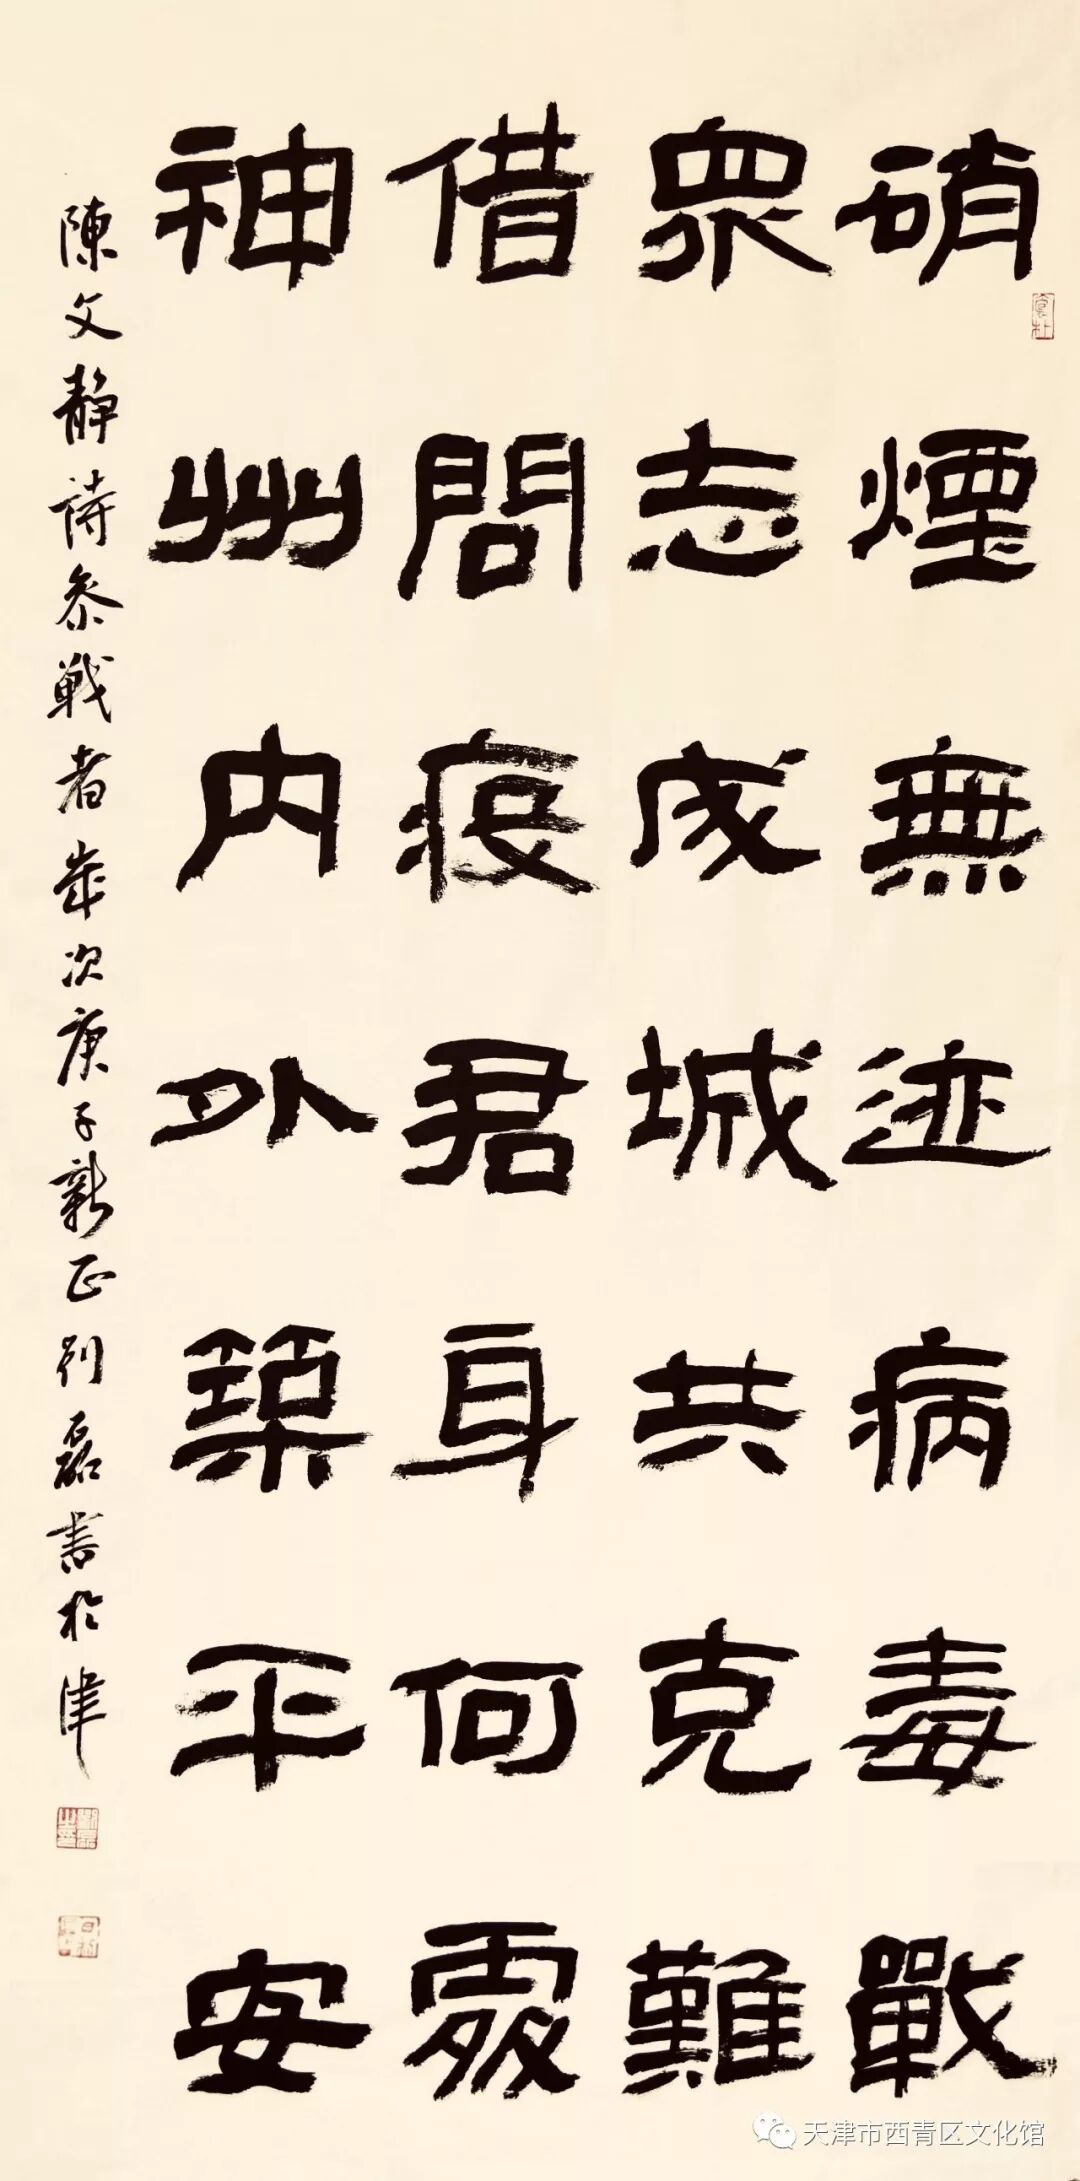 硝煙無迹病毒戰
眾志成城共克難
借問疫君身何處
神州内外築平安
陳文靜詩參戰者歲次庚子新正刘磊書於津
天津市西青区文化馆